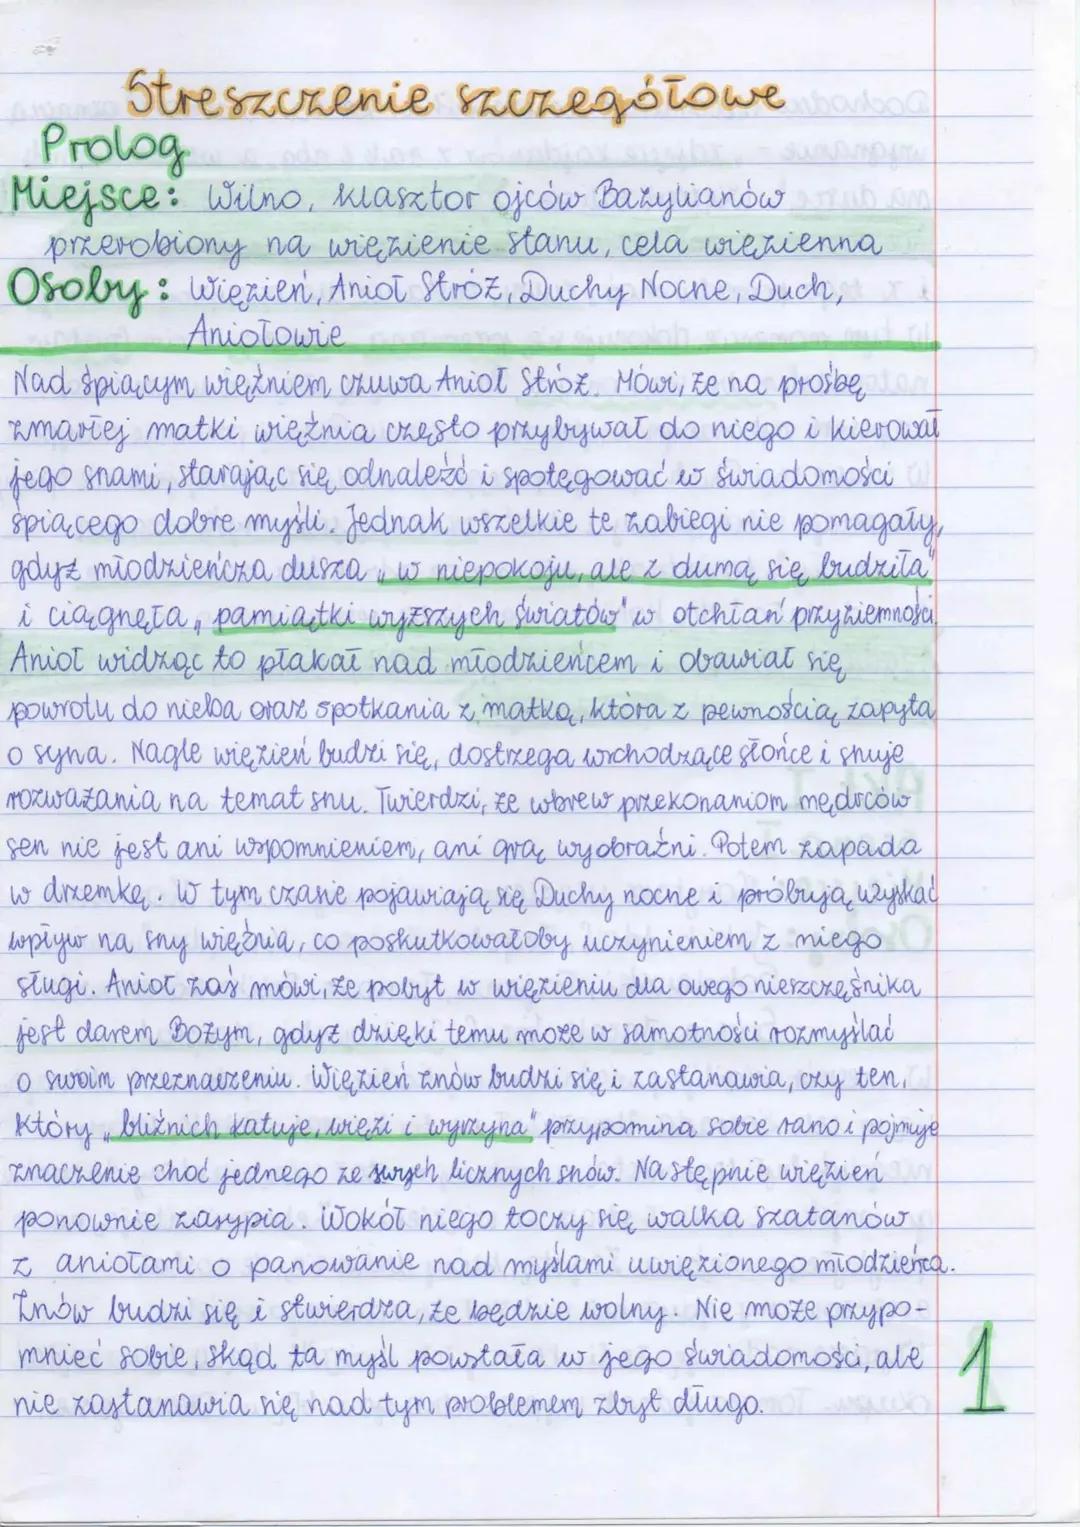 Streszczenie szczegółowe
Prolog
Miejsce: Wilno, klasztor ojców Bazylianów
przerobiony na więzienie stanu, cela więzienna
Osoby: Więzień, Anioł Stróż, Duchy Nocne, Duch,
Aniołowie
Nad śpiącym więźniem czuwa Anioł Stróż. Mówi, że na prośbę
zmarłej matki więźnia często przybywał do niego i kierował
jego snami, starając się odnaleźć i spotęgować w świadomości
śpiącego dobre myśli. Jednak wszelkie te zabiegi nie pomagały,
gdyż młodzieńcza dusza „w niepokoju, ale z dumą się budziła"
i ciągnęła „pamiątki wyższych światów" w otchłań przyziemności.
Anioł widząc to płakał nad młodzieńcem i obawiał się
powrotu do nieba oraz spotkania z matką, która z pewnością zapyta
o syna. Nagle więzień budzi się, dostrzega wschodzące słońce i snuje
rozważania na temat snu. Twierdzi, że wbrew przekonaniom mędrców
sen nie jest ani wspomnieniem, ani grą wyobraźni. Potem zapada
w drzemkę. W tym czasie pojawiają się Duchy nocne i próbują uzyskać
wpływ na sny więźnia, co poskutkowałoby uczynieniem z niego
sługi. Anioł zaś mówi, że pobyt w więzieniu dla owego nieszczęśnika
jest darem Bożym, gdyż dzięki temu może w samotności rozmyślać
o swoim przeznaczeniu. Więzień znów budzi się i zastanawia, czy ten,
który „bliźnich katuje, więzi i wyrzyna" przypomina sobie rano i pojmuje
znaczenie choć jednego ze swych licznych snów. Następnie więzień
ponownie zasypia. Wokół niego toczy się walka szatanów
z aniołami o panowanie nad myślami uwięzionego młodzieńca.
Znów budzi się i stwierdza, że będzie wolny. Nie może przypo-
mnieć sobie, skąd ta myśl powstała w jego świadomości, ale
nie zastanawia się nad tym problemem zbyt długo.
1